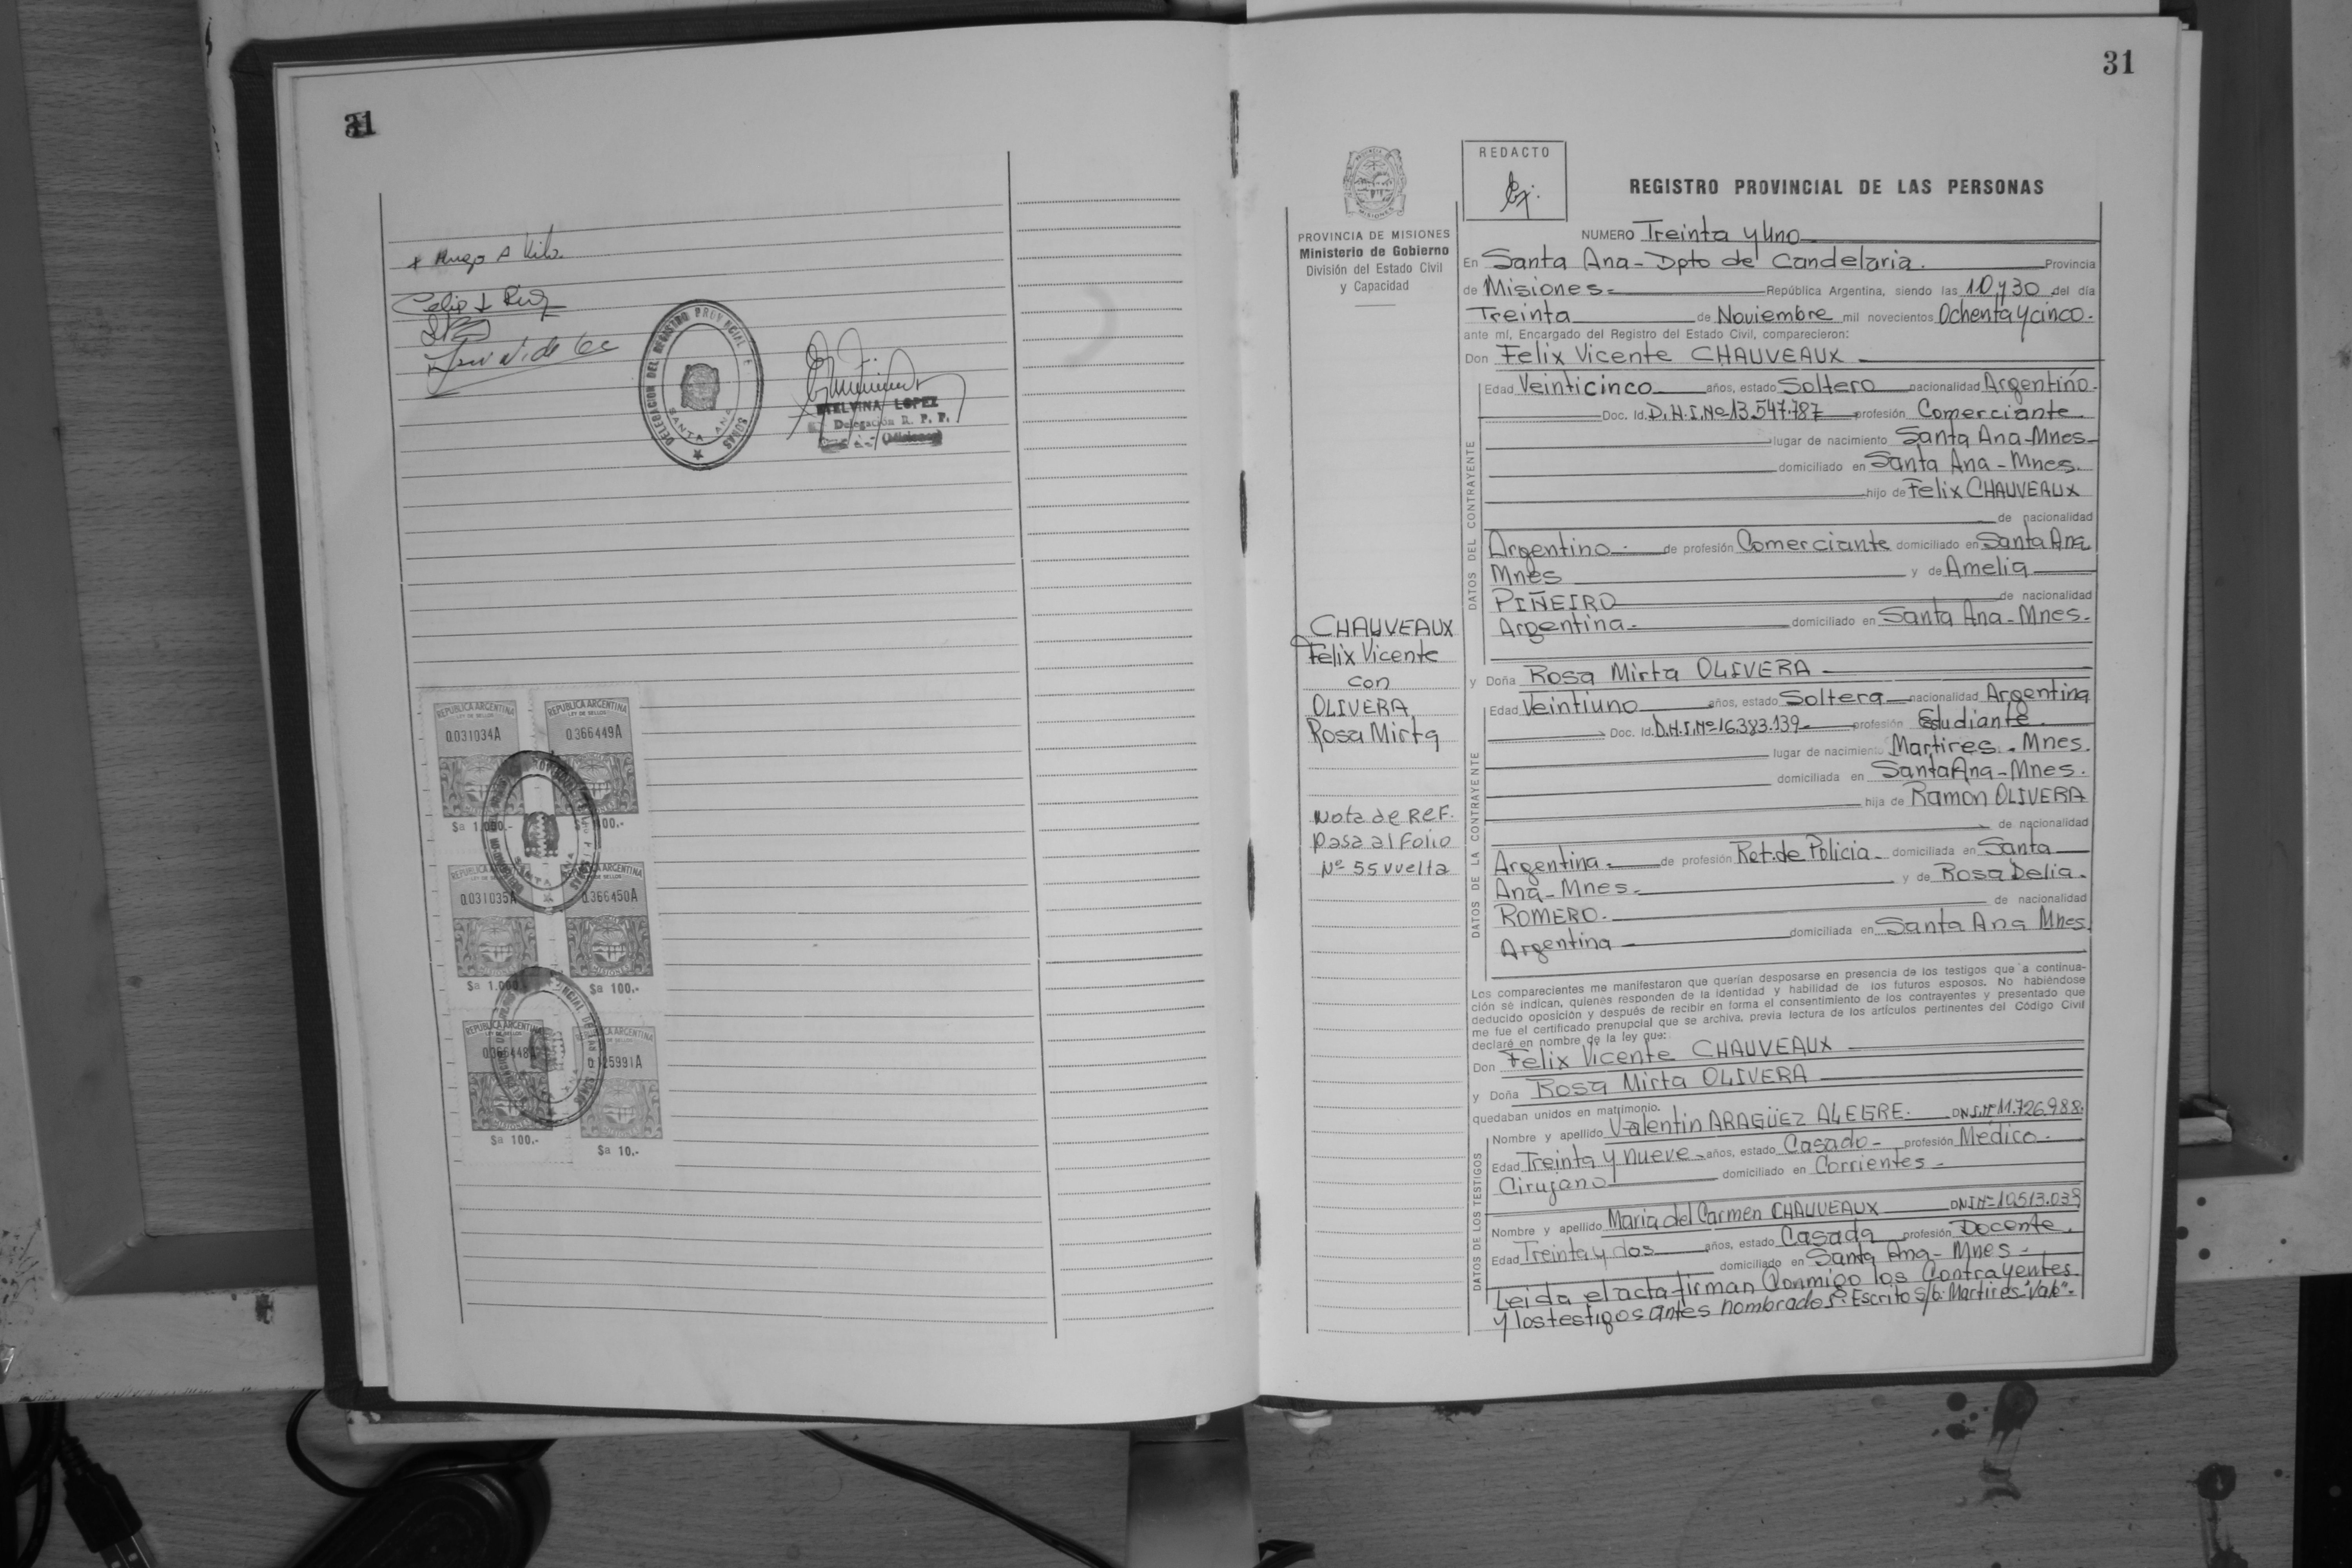 31
DELEGACION DEL REGISTRO PROVINCIAL DE
SONAS
SANTA ANA
ETELVINA LOPEZ
Delegación R. P. P.
(Misiones)
REPUBLICA ARGENTINA
LEY DE SELLOS
0.031034A
$a 1.000.-
REPUBLICA ARGENTINA
LEY DE SELLOS
0.366449A
100.-
REPUBLICA ARGENTINA
0.031035A
MISIONES
$a 1.000.-
ARGENTINA
0.366450A
MISIONES
$a 100.-
REPUBLICA ARGENTINA
0.366448A
$a 100.-
ARGENTINA
0.125991A
$a 10.-
31
PROVINCIA DE MISIONES
Ministerio de Gobierno
División del Estado Civil
y Capacidad
CHAUVEAUX
Felix Vicente
con
OLIVERA
Rosa Mirta
Nota de REF.
Pasa al Folio
Nº 55 vuelta
REDACTO
REGISTRO PROVINCIAL DE LAS PERSONAS
NUMERO Treinta y Uno
En Santa Ana - Dpto de Candelaria. Provincia
de Misiones - República Argentina, siendo las 10 y 30 del día
Treinta de Noviembre mil novecientos Ochenta y cinco.
ante mí, Encargado del Registro del Estado Civil, comparecieron:
Don Felix Vicente CHAUVEAUX
DATOS DEL CONTRAYENTE
Edad Veinticinco años, estado Soltero nacionalidad Argentino.
Doc. Id. D.N.I. Nº 13.547.787 profesión Comerciante
lugar de nacimiento Santa Ana - Mnes
domiciliado en Santa Ana - Mnes.
hijo de Felix CHAUVEAUX
de nacionalidad
Argentino - de profesión Comerciante domiciliado en Santa Ana
Mnes y de Amelia
PIÑEIRO de nacionalidad
Argentina - domiciliado en Santa Ana - Mnes.
y Doña Rosa Mirta OLIVERA
DATOS DE LA CONTRAYENTE
Edad Veintiuno años, estado Soltera nacionalidad Argentina
Doc. Id. D.N.I. Nº 16.383.139 - profesión Estudiante
lugar de nacimiento Martires - Mnes.
domiciliada en Santa Ana - Mnes.
hija de Ramon OLIVERA
de nacionalidad
Argentina - de profesión Ret. de Policia - domiciliada en Santa
Ana - Mnes. y de Rosa Delia.
ROMERO. de nacionalidad
Argentina domiciliada en Santa Ana Mnes.
Los comparecientes me manifestaron que querían desposarse en presencia de los testigos que a continua-
ción se indican, quienes responden de la identidad y habilidad de los futuros esposos. No habiéndose
deducido oposición y después de recibir en forma el consentimiento de los contrayentes y presentado que
me fue el certificado prenupcial que se archiva, previa lectura de los artículos pertinentes del Código Civil
declaré en nombre de la ley que:
Don Felix Vicente CHAUVEAUX
y Doña Rosa Mirta OLIVERA
quedaban unidos en matrimonio.
DATOS DE LOS TESTIGOS
Nombre y apellido Valentin ARAGÜEZ ALEGRE. DNI. Nº 11.726.988.
Edad Treinta y nueve años, estado Casado - profesión Médico -
Cirujano domiciliado en Corrientes -
Nombre y apellido Maria del Carmen CHAUVEAUX DNI Nº 10.513.038
Edad Treinta y dos años, estado Casada profesión Docente.
domiciliado en Santa Ana - Mnes -
Leida el acta firman Conmigo los Contrayentes
y los testigos antes nombrados: Escrito s/b: Martires "Vale".